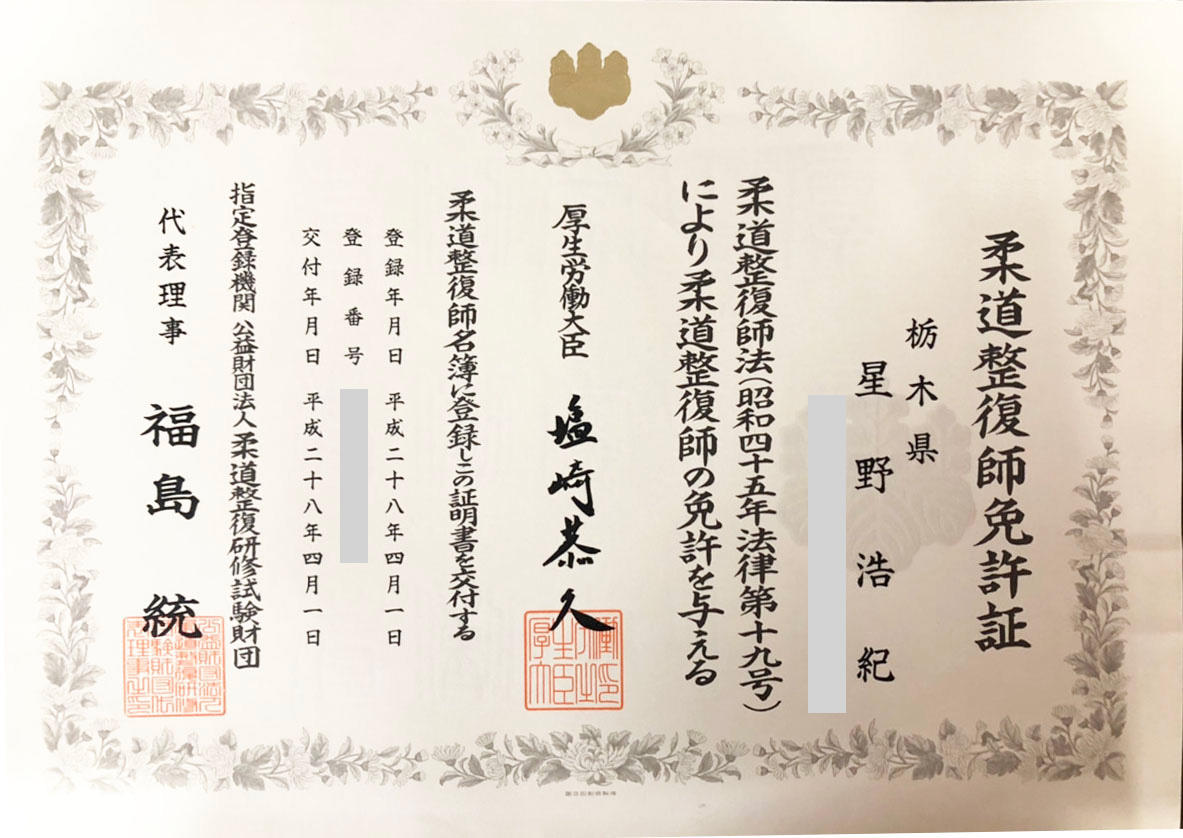 柔道整復師免許証
栃木県
星野浩紀
柔道整復師法(昭和四十五年法律第十九号)
により柔道整復師の免許を与える
厚生労働大臣 塩崎恭久
柔道整復師名簿に登録しこの証明書を交付する
登録年月日 平成二十八年四月一日
登録番号
交付年月日 平成二十八年四月一日
指定登録機関 公益財団法人 柔道整復研修試験財団
代表理事 福島統